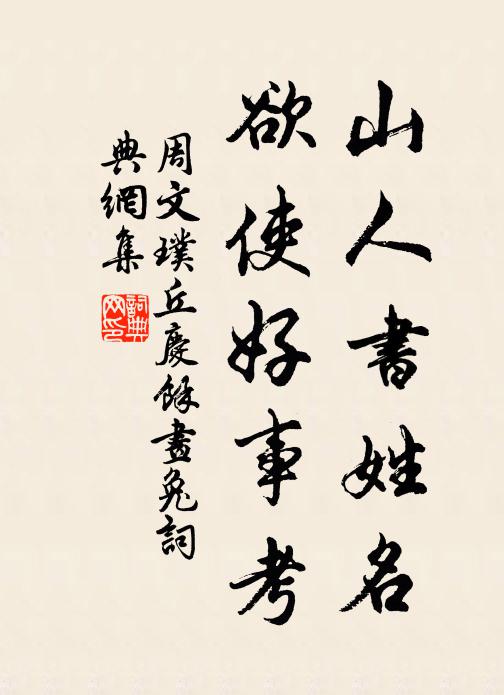 山人書姓名
欲使好事考
周文璞丘慶餘畫兔詞
典網集
詞典網印